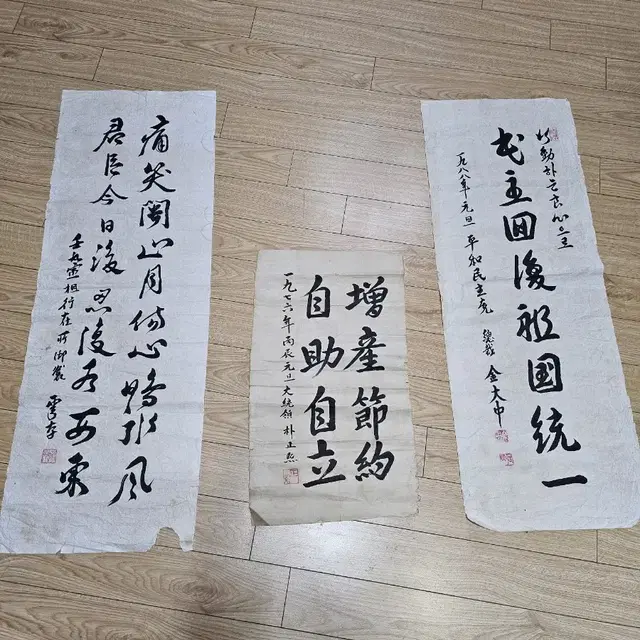 痛哭関山月傷心鴨水風
君臣今日後忍復各西東
行在所御製
增產節約
自助自立
一九七六年丙辰元旦 大統領 朴正熙
行動하는良心으로
民主回復祖國統一
一九八八年元旦 平和民主党 總裁 金大中